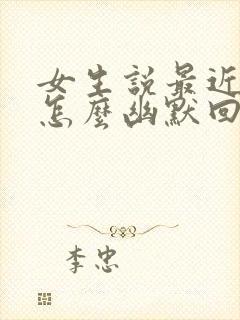 女生説最近
怎麼幽默回
李忠